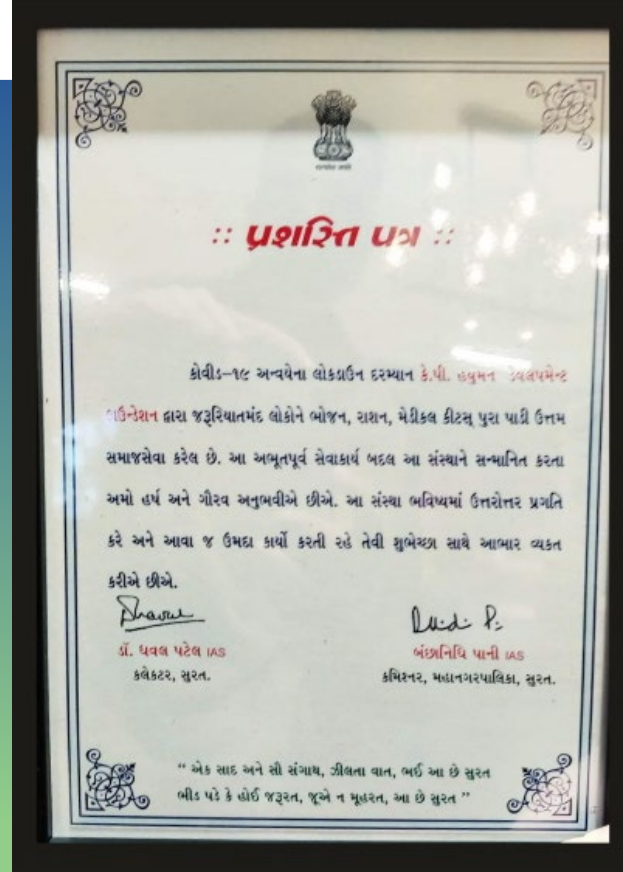 :: પ્રશસ્તિ પત્ર ::
કોવીડ-૧૯ અન્વયેના લોકડાઉન દરમ્યાન કે.પી. હયુમન ડેવલપમેન્ટ
ફાઉન્ડેશન દ્વારા જરૂરિયાતમંદ લોકોને ભોજન, રાશન, મેડીકલ કીટસ્ પુરા પાડી ઉત્તમ
સમાજસેવા કરેલ છે. આ અભૂતપૂર્વ સેવાકાર્ય બદલ આ સંસ્થાને સન્માનિત કરતા
અમો હર્ષ અને ગૌરવ અનુભવીએ છીએ. આ સંસ્થા ભવિષ્યમાં ઉત્તરોત્તર પ્રગતિ
કરે અને આવા જ ઉમદા કાર્યો કરતી રહે તેવી શુભેચ્છા સાથે આભાર વ્યકત
કરીએ છીએ.
ડૉ. ધવલ પટેલ IAS
કલેકટર, સુરત.
બંછાનિધિ પાની IAS
કમિશ્નર, મહાનગરપાલિકા, સુરત.
“ એક સાદ અને સૌ સંગાથ, ઝીલતા વાત, ભઈ આ છે સુરત
ભીડ પડે કે હોઈ જરૂરત, જૂએ ન મૂહરત, આ છે સુરત ”